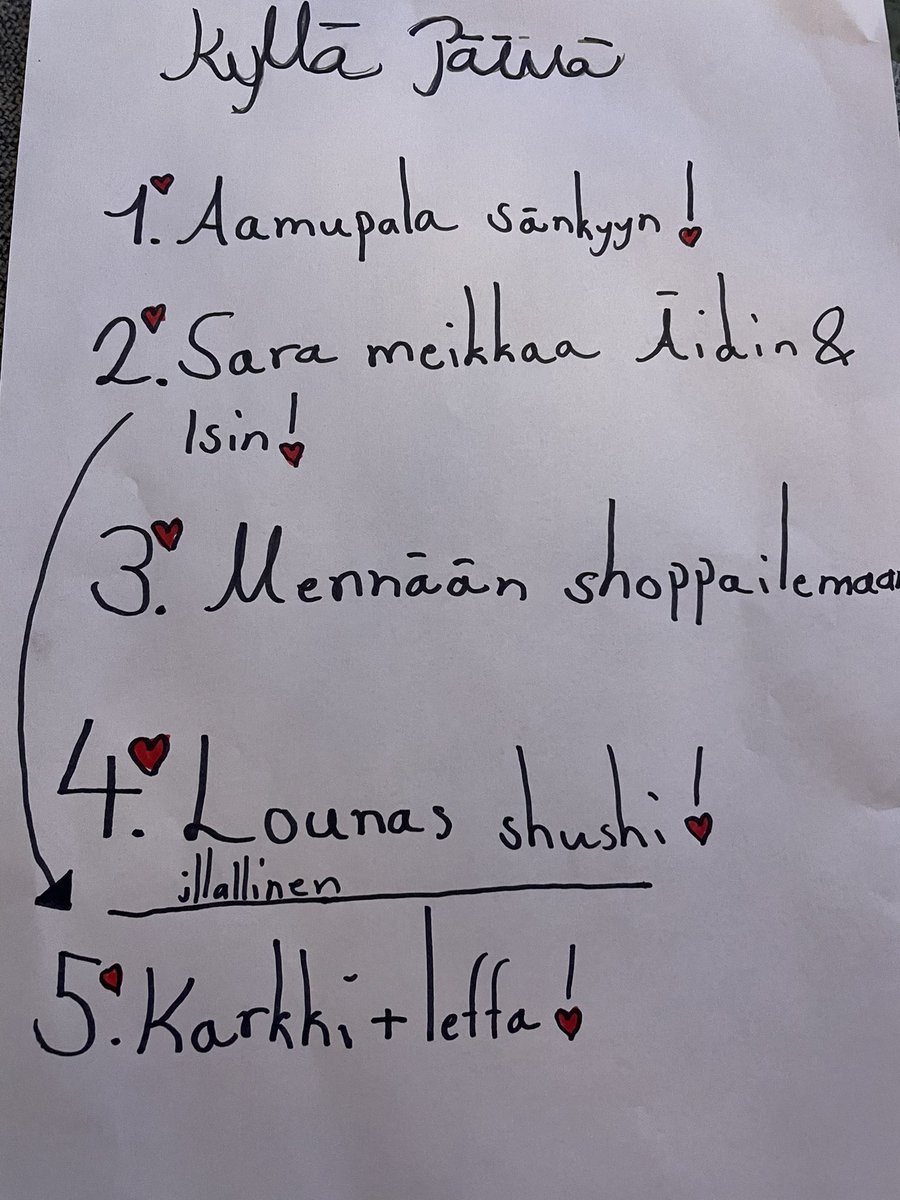 Kyllä Päivä
1. Aamupala sänkyyn!
2. Sara meikkaa Äidin &
Isin!
3. Mennään shoppailemaan
4. Lounas shushi!
illallinen
5. Karkki + leffa!